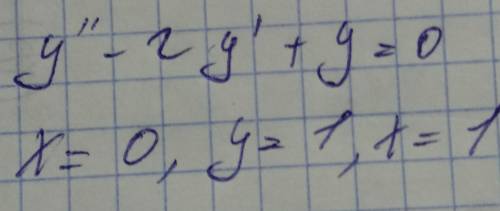 y'' - 2y' + y = 0
x = 0, y = 1, x = 1